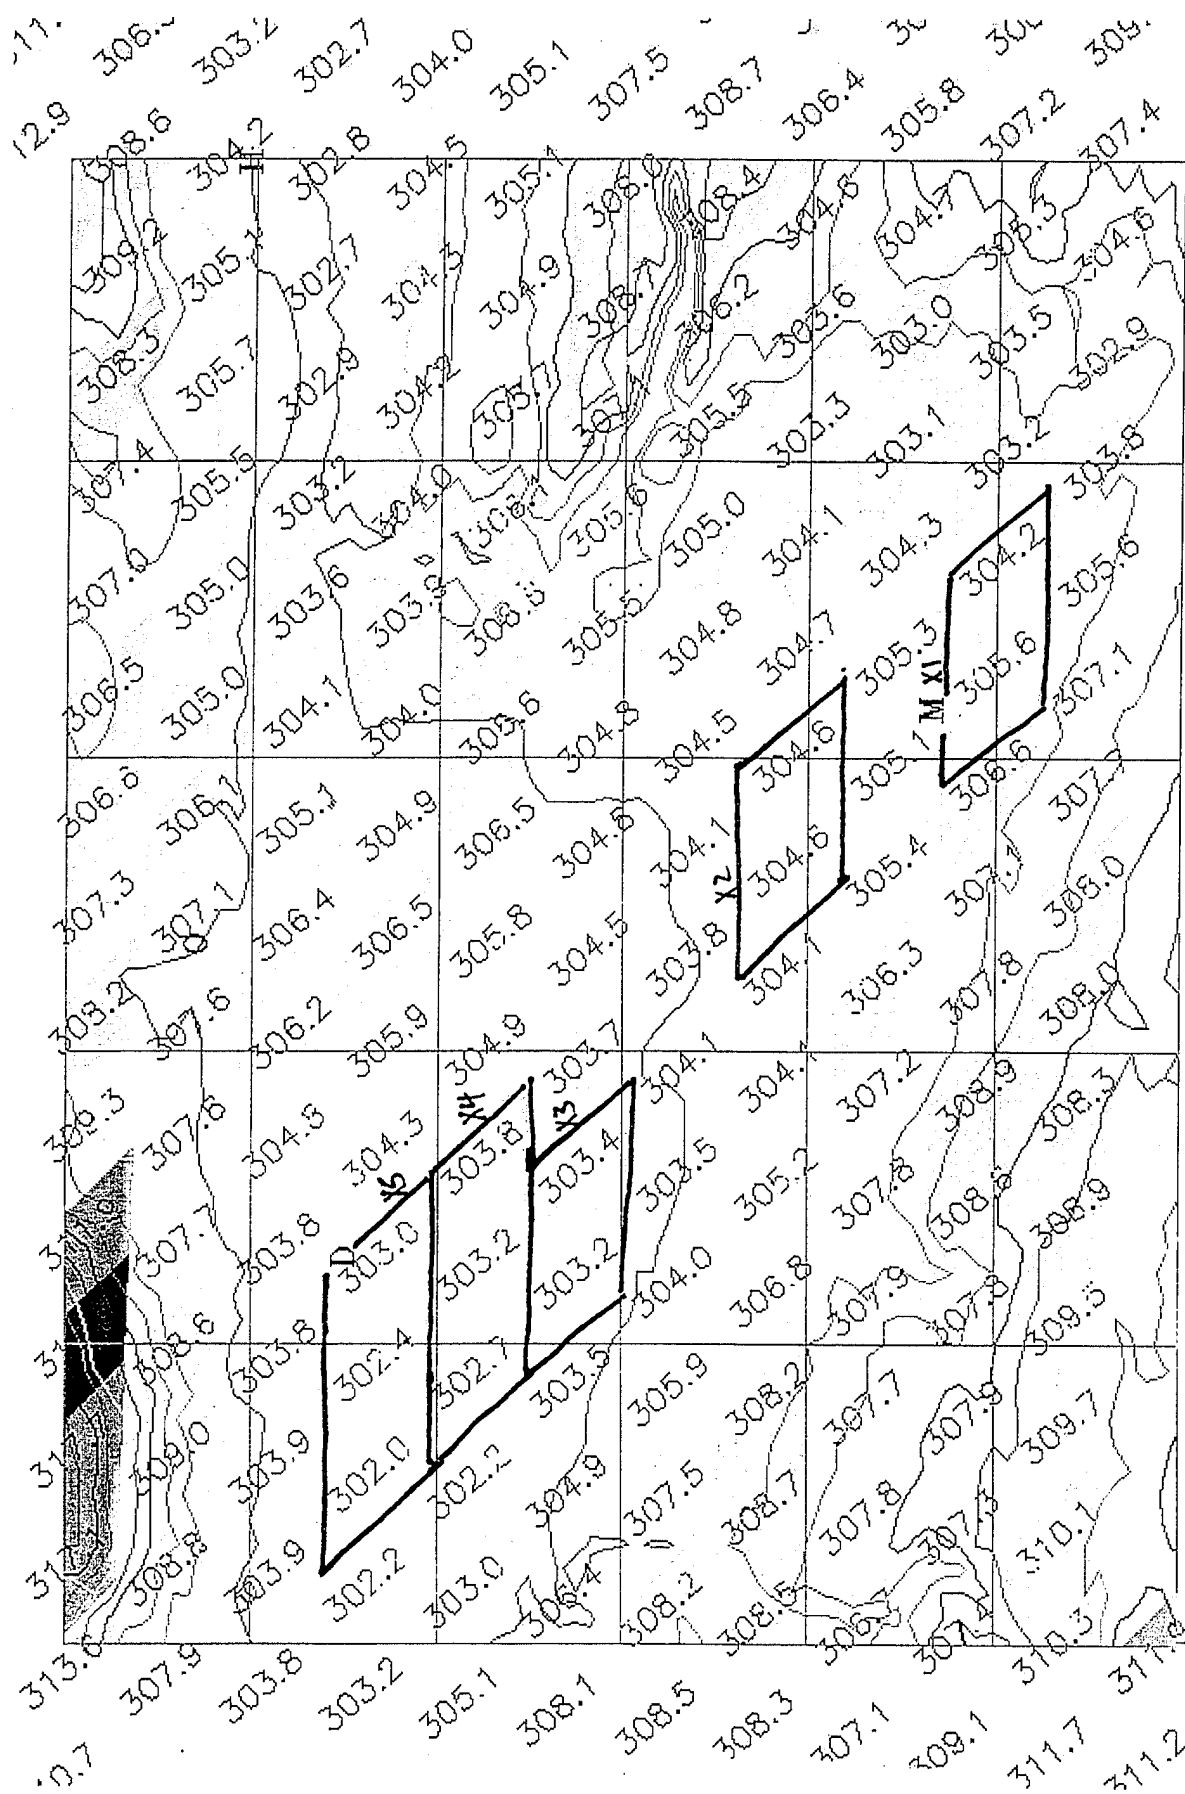 306.
303.2
302.7
304.0
305.1
307.5
308.7
306.4
305.8
307.2
307.4
308.6
304.2
302.8
304.5
305.1
308.4
304.6
304.7
305.3
304.6
309.2
302.7
304.3
304.9
306.2
303.6
303.0
303.5
302.9
308.3
305.7
302.9
304.2
305.5
303.3
303.1
303.2
303.8
307.4
305.5
303.2
304.0
305.0
304.1
304.3
304.2
305.6
307.0
305.0
303.6
305.5
304.8
304.7
305.3
305.6
307.1
M X1
306.5
305.0
304.1
304.0
305.6
304.8
304.5
304.6
305.1
306.6
306.6
306.1
305.1
304.9
306.5
304.6
304.1
304.6
305.4
307.1
308.0
X2
307.3
307.1
306.4
306.5
305.8
304.5
303.8
304.1
306.3
307.8
308.0
308.2
307.6
306.2
305.9
304.9
303.7
304.1
307.2
308.9
308.3
309.3
307.6
304.5
304.3
X4
303.8
X3
303.4
303.5
305.2
307.8
308.9
307.7
303.8
X5
D
303.0
303.2
303.2
304.0
306.8
307.9
309.5
308.6
303.8
302.4
302.7
303.5
305.9
308.2
307.7
307.9
309.7
309.0
303.9
302.0
302.2
304.9
307.5
308.7
307.8
307.3
310.1
308.8
303.9
302.2
303.0
305.4
308.2
308.5
310.3
313.6
307.9
303.8
303.2
305.1
308.1
308.5
308.3
307.1
309.1
311.7
311.2